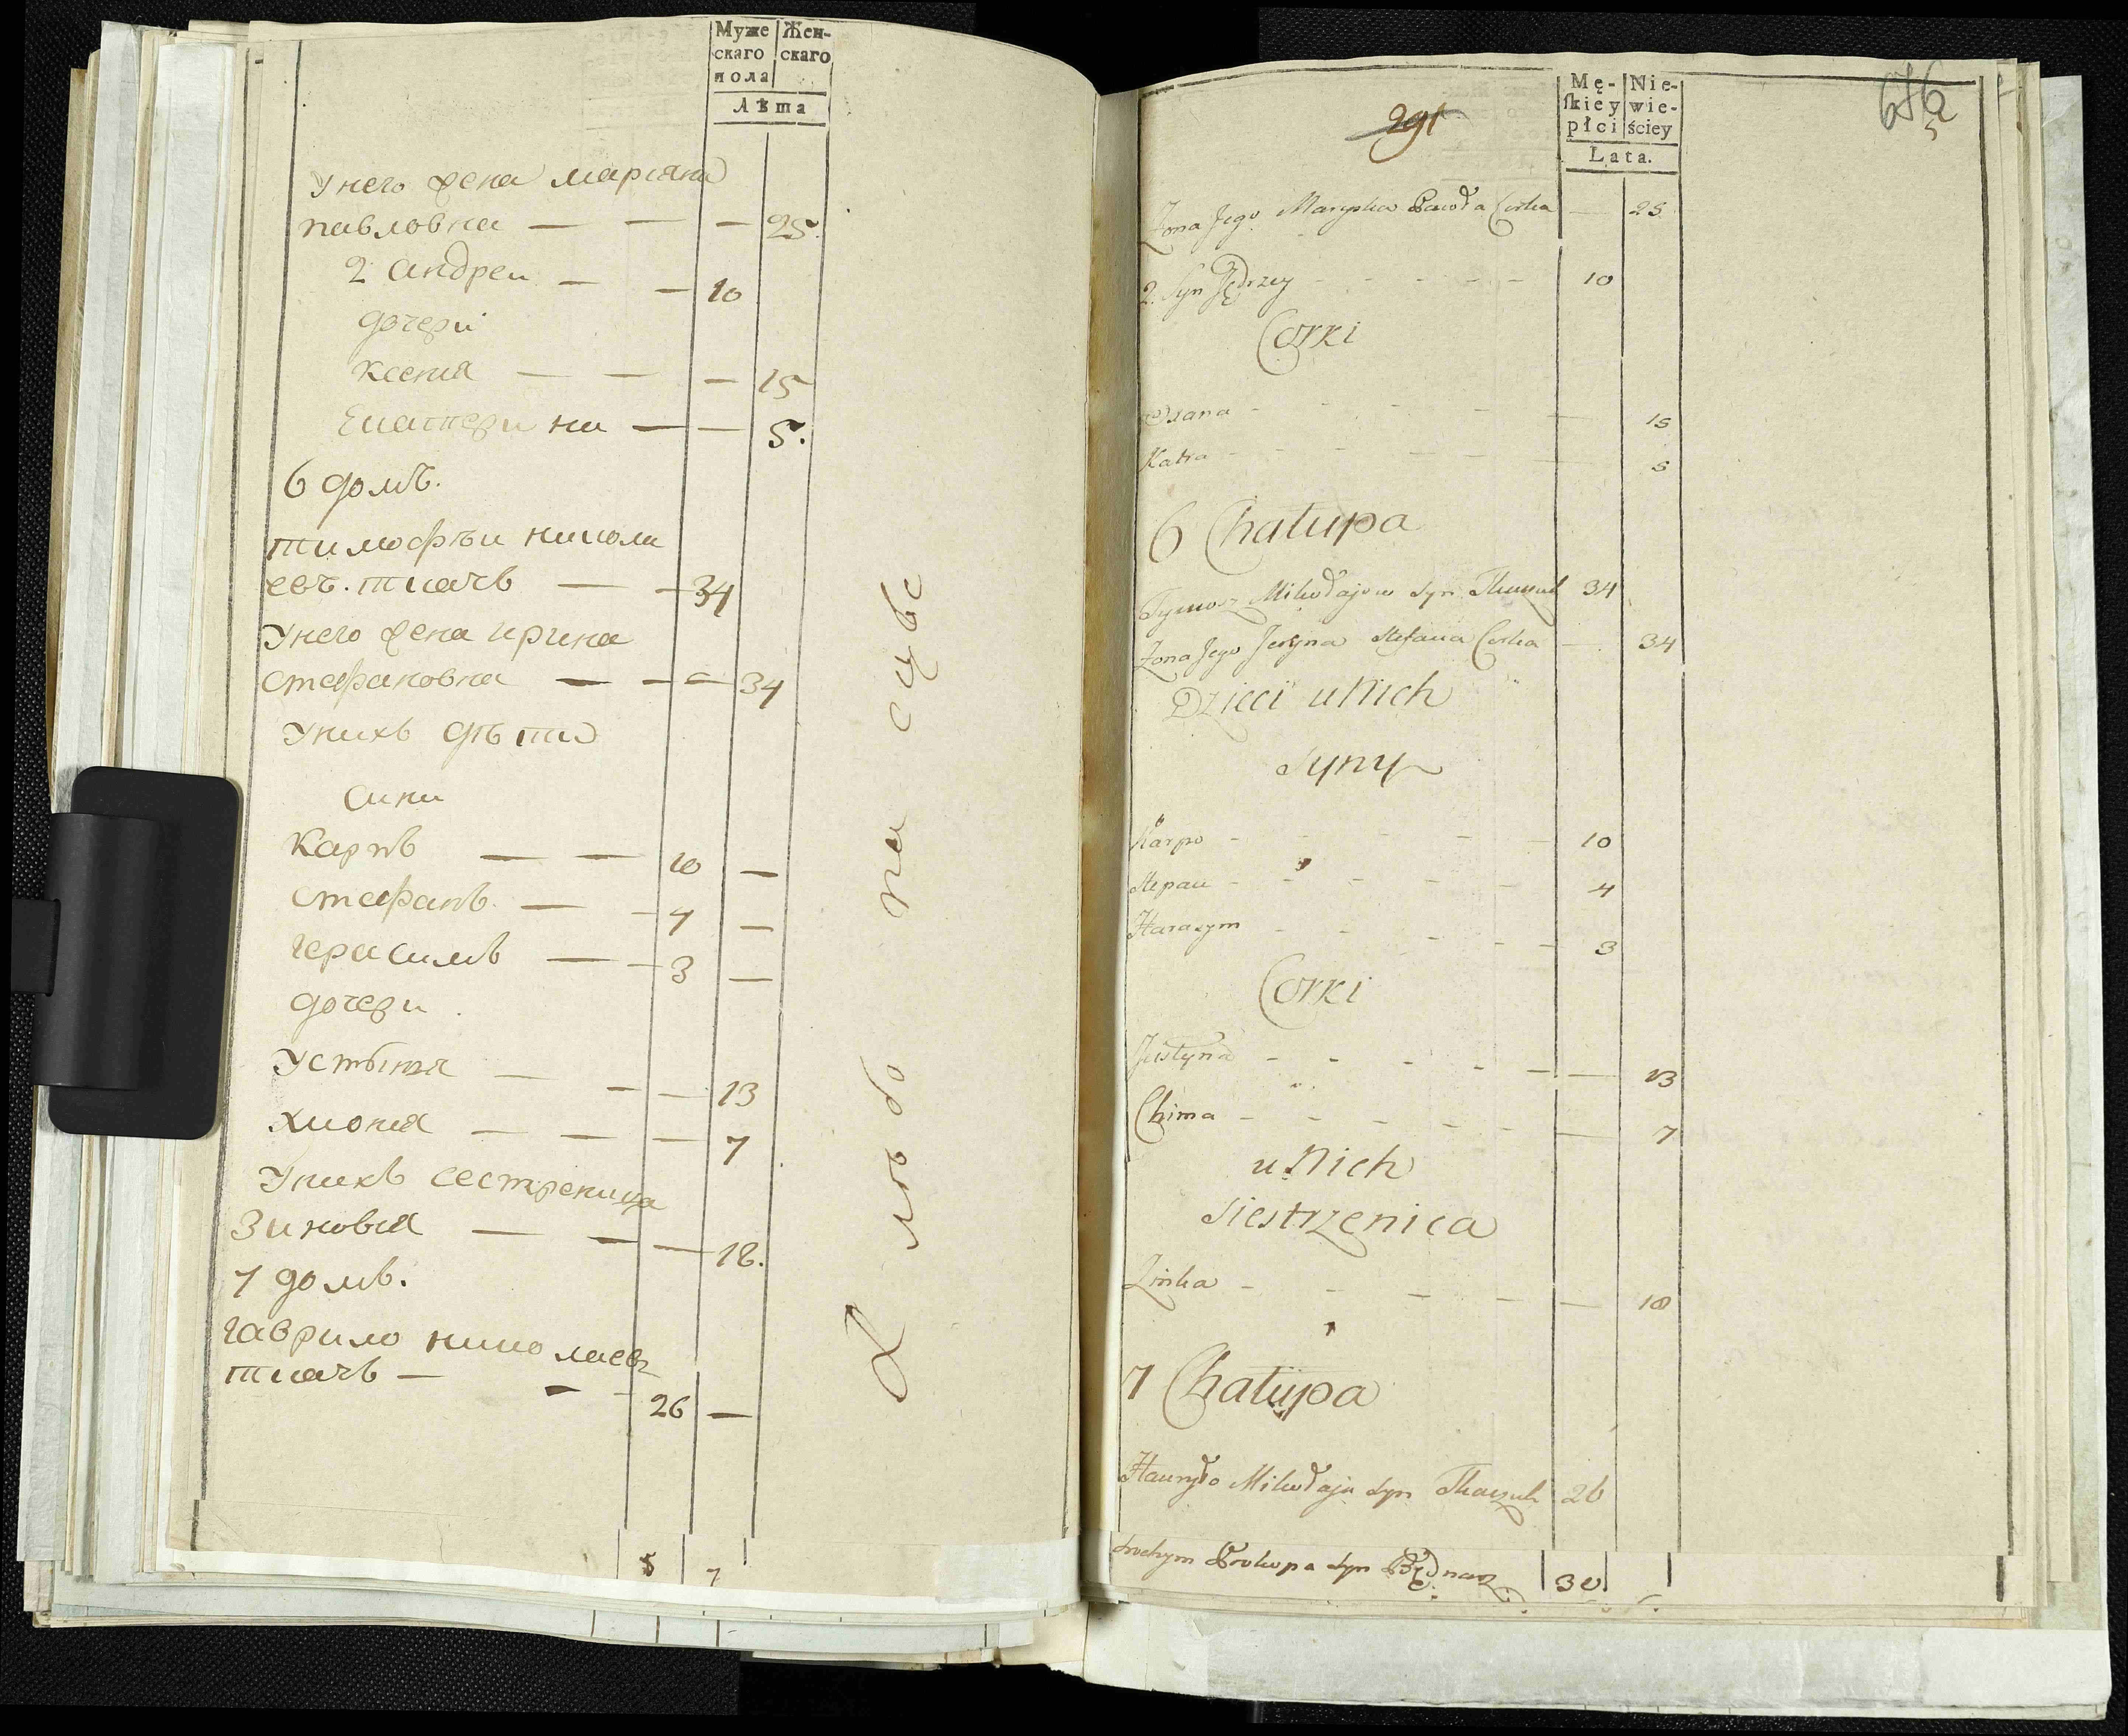 Муже
скаго
пола
Жен-
скаго
Лѣта
У него жена марiяна
павловна — — — 25.
2 андреи — — 10
дочери
ксения — — — 15
Екатерина — — 5.
6 домъ.
тимофѣи никола
евъ. ткачъ — — 34
У него жена ирина
стефановна — — — 34
У нихъ дѣти
сини
Карпъ — — 10 —
стефанъ — — 4 —
герасимъ — — 3 —
дочери
Устинiя — — — 13
хиония — — — 7
У нихъ сестреница
Зиновiя — — — 18.
7 домъ.
гаврило николаевъ
ткачъ — — 26 —
5 7
291
Mę-
skiey
płci
Nie-
wie-
ściey
Lata.
Zona Jego Maryska Pawła Corka — 25
2. Syn Jędrzey - - - - - 10
Corki
Oxana - - - - — 15
Katra - - - - - — 5
6 Chałupa
Tymosz Mikołajow Syn Tkaczuk 34
Zona Jego Jeryna Stefana Corka — 34
Dzieci u Nich
Syny
Karpo - - - - - 10
Stepan - - - - - 4
Harasym - - - - - 3
Corki
Justyna - - - - - — 13
Chima - - - - - - — 7
u Nich
Siestrzenica
Zinka - - - - - — 18
7 Chałupa
Hawryło Mikołaja Syn Tkaczuk 26
Prokopa Syn Bednarz 30